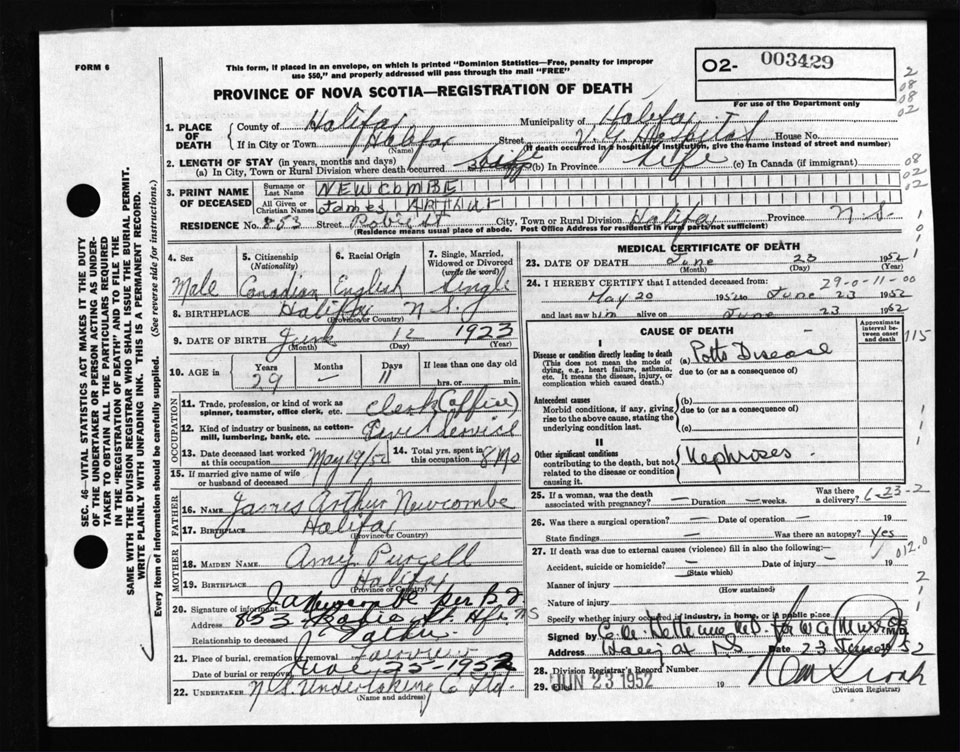 FORM 6
This form, if placed in an envelope, on which is printed "Dominion Statistics—Free, penalty for improper
use $50," and properly addressed will pass through the mail "FREE"
O2- 003429
For use of the Department only
PROVINCE OF NOVA SCOTIA—REGISTRATION OF DEATH
2
08
08
02
1. PLACE OF DEATH
County of Halifax Municipality of Halifax
If in City or Town Halifax Street V. G. Hospital House No.
(Name) (If death occurred in a hospital or institution, give its name instead of street and number)
2. LENGTH OF STAY (in years, months and days)
(a) In City, Town or Rural Division where death occurred Life (b) In Province Life (c) In Canada (if immigrant)
08
02
02
3. PRINT NAME OF DECEASED
Surname or Last Name NEWCOMBE
All Given or Christian Names James ARTHUR
RESIDENCE No. 853 Street Robie St City, Town or Rural Division Halifax Province N.S.
(Residence means usual place of abode. Post Office Address for residents in rural parts not sufficient)
SEC. 46—VITAL STATISTICS ACT MAKES IT THE DUTY
OF THE UNDERTAKER OR PERSON ACTING AS UNDER-
TAKER TO OBTAIN ALL THE PARTICULARS REQUIRED
IN THE "REGISTRATION OF DEATH" AND TO FILE THE
SAME WITH THE DIVISION REGISTRAR WHO SHALL ISSUE THE BURIAL PERMIT.
WRITE PLAINLY WITH UNFADING INK. THIS IS A PERMANENT RECORD.
Every item of information should be carefully supplied. (See reverse side for instructions.)
4. Sex
Male
5. Citizenship
(Nationality)
Canadian
6. Racial Origin
English
7. Single, Married,
Widowed or Divorced
(write the word)
Single
8. BIRTHPLACE Halifax N.S.
(Province or Country)
9. DATE OF BIRTH June 12 1923
(Month) (Day) (Year)
10. AGE in
Years 29
Months —
Days 11
If less than one day old
hrs. or min.
OCCUPATION
11. Trade, profession, or kind of work as
spinner, teamster, office clerk, etc. Clerk (Office)
12. Kind of industry or business, as cotton-
mill, lumbering, bank, etc. Civil Service
13. Date deceased last worked
at this occupation May 19/52
14. Total yrs. spent in
this occupation 8 Mo
15. If married give name of wife
or husband of deceased
FATHER
16. NAME James Arthur Newcombe
17. BIRTHPLACE Halifax
(Province or Country)
MOTHER
18. MAIDEN NAME Amy Purcell
19. BIRTHPLACE Halifax
(Province or Country)
20. Signature of informant
853 Robie St. Hfx NS
Relationship to deceased Father
21. Place of burial, cremation or removal Fairview
Date of burial or removal June 25-1952
22. UNDERTAKER N.S. Undertaking Co Ltd.
(Name and address)
MEDICAL CERTIFICATE OF DEATH
23. DATE OF DEATH June 23 1952
(Month) (Day) (Year)
29-0-11-00
24. I HEREBY CERTIFY that I attended deceased from:
May 20 1952 to June 23 1952
and last saw him alive on June 23 1952
CAUSE OF DEATH
Approximate
interval be-
tween onset
and death
I
Disease or condition directly leading to death
(This does not mean the mode of
dying, e.g., heart failure, asthenia,
etc. It means the disease, injury, or
complication which caused death.)
(a) Potts Disease
due to (or as a consequence of)
Antecedent causes
Morbid conditions, if any, giving
rise to the above cause, stating the
underlying condition last.
(b)
due to (or as a consequence of)
(c)
II
Other significant conditions
contributing to the death, but not
related to the disease or condition
causing it.
Nephroses.
25. If a woman, was the death
associated with pregnancy? — Duration — weeks.
Was there
a delivery?
6-23-2
26. Was there a surgical operation? — Date of operation — 19
State findings — Was there an autopsy? Yes
27. If death was due to external causes (violence) fill in also the following:—
Accident, suicide or homicide? — Date of injury — 19
(State which)
Manner of injury
(How sustained)
Nature of injury
Specify whether injury occurred in industry, in home, or in public place
Signed by M.D.
Address Halifax NS Date 23 June 1952
28. Division Registrar's Record Number
29. JUN 23 1952 19
(Division Registrar)
115
012.0
2
1